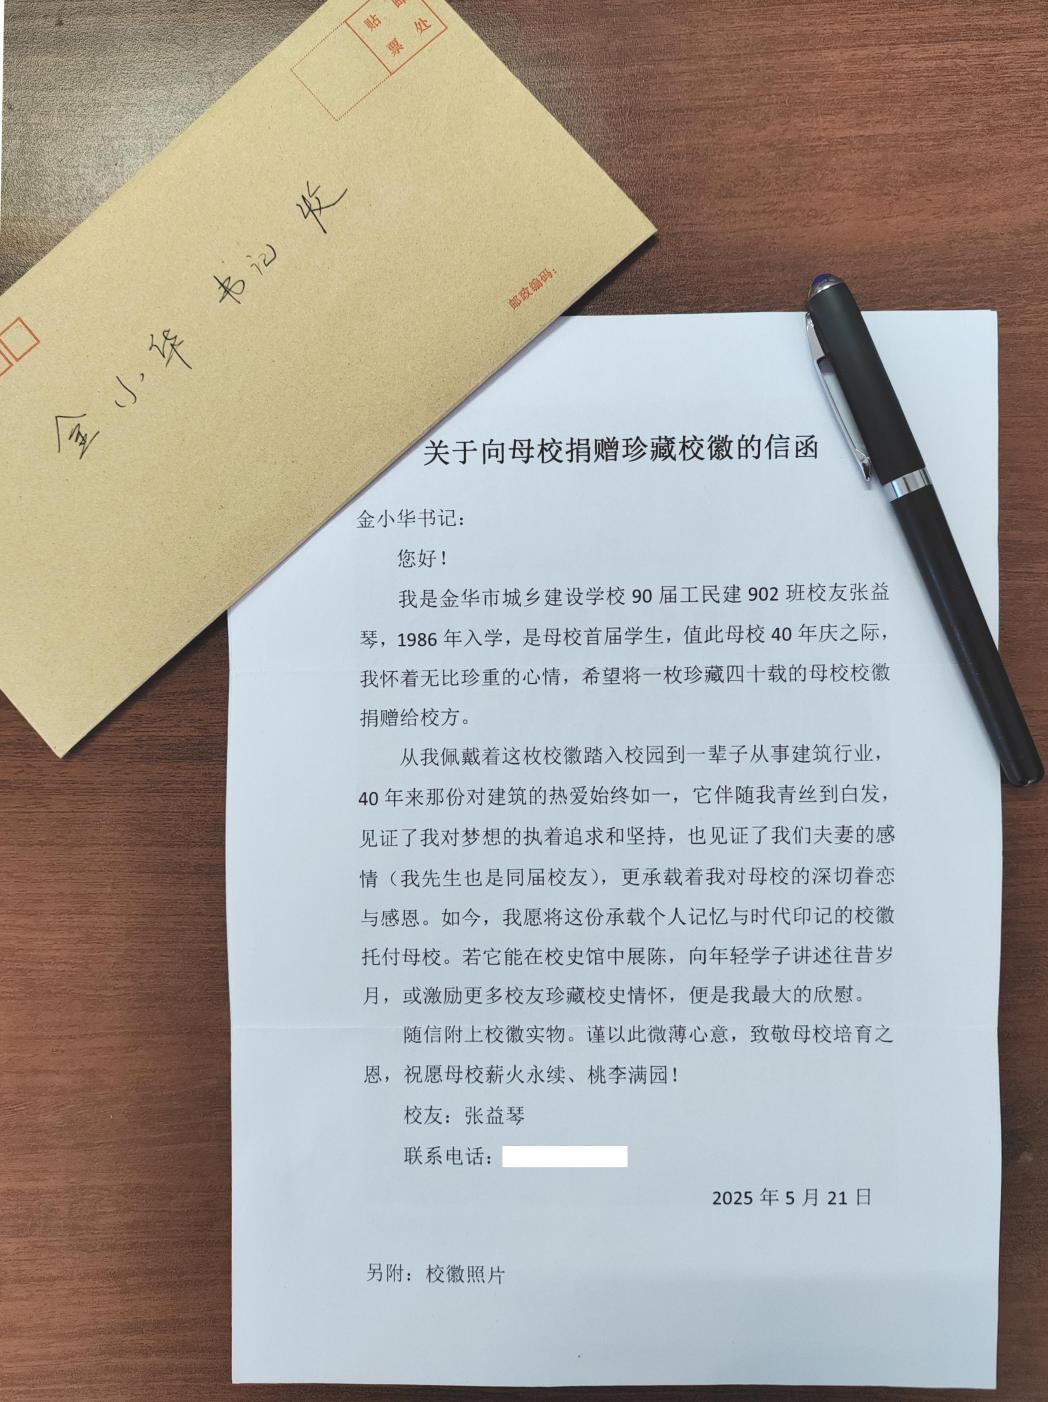 贴 邮
票 处
金小华 书记 收
邮政编码：
关于向母校捐赠珍藏校徽的信函
金小华书记：
您好！
我是金华市城乡建设学校 90 届工民建 902 班校友张益
琴，1986 年入学，是母校首届学生，值此母校 40 年庆之际，
我怀着无比珍重的心情，希望将一枚珍藏四十载的母校校徽
捐赠给校方。
从我佩戴着这枚校徽踏入校园到一辈子从事建筑行业，
40 年来那份对建筑的热爱始终如一，它伴随我青丝到白发，
见证了我对梦想的执着追求和坚持，也见证了我们夫妻的感
情（我先生也是同届校友），更承载着我对母校的深切眷恋
与感恩。如今，我愿将这份承载个人记忆与时代印记的校徽
托付母校。若它能在校史馆中展陈，向年轻学子讲述往昔岁
月，或激励更多校友珍藏校史情怀，便是我最大的欣慰。
随信附上校徽实物。谨以此微薄心意，致敬母校培育之
恩，祝愿母校薪火永续、桃李满园！
校友：张益琴
联系电话：
2025 年 5 月 21 日
另附：校徽照片